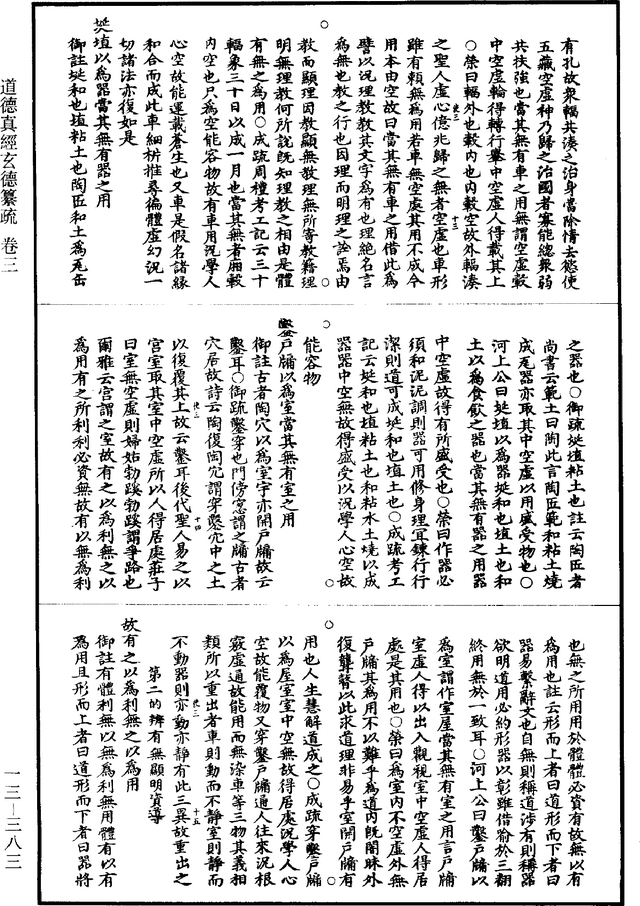 道德真經玄德纂疏 卷三
一三—三八三
有孔故衆輻共湊之治身當除情去慾使
五藏空虛神乃歸之治國者寡能總衆弱
共扶強也當其無有車之用無謂空虛轂
中空虛輪得轉行轝中空虛人得載其上
○榮曰輻外也轂內也內轂空故外輻湊
之聖人虛心億兆歸之無者空虛也車形
雖有賴無爲用若車無空處其用不成今
用本由空故曰當其無有車之用借此爲
譬以況理教教其文字爲有也理絕名言
爲無也教之行也因理而明理之詮焉由
教而顯理因教顯無教理無所寄教藉理
明無理教何所說既知理教之相由是體
有無之爲用○成疏周禮考工記云三十
輻象三十日以成一月也當其無者廂轂
內空也只爲空能容物故有車用況學人
心空故能運載蒼生也又車是假名諸緣
和合而成此車細析推尋徧體虛幻況一
切諸法亦復如是
埏埴以爲器當其無有器之用
御註埏和也埴粘土也陶匠和土爲瓦缶
之器也○御疏埏埴粘土也註云陶匠者
尚書云範土曰陶此言陶匠範和粘土燒
成瓦器亦取其中空虛以用盛受物也○
河上公曰埏埴以爲器埏和也埴土也和
土以爲食飲之器也當其無有器之用器
中空虛故得有所盛受也○榮曰作器必
須和泥泥調則器可用修身理宜鍊行行
潔則道可成埏和也埴土也○成疏考工
記云埏和也埴粘土也和粘水土燒以成
器器中空無故得盛受以況學人心空故
能容物
鑿戶牖以爲室當其無有室之用
御註古者陶穴以爲室宇亦開戶牖故云
鑿耳○御疏鑿穿也門傍窓謂之牖古者
穴居故詩云陶復陶穴謂穿鑿穴中之土
以復覆其上故云鑿耳後代聖人易之以
宮室取其室中空虛所以人得居處莊子
曰室無空虛則婦姑勃蹊勃蹊謂爭路也
爾雅云宮謂之室故有之以爲利無之以
爲用有之所利利必資無故有以無爲利
也無之所用用於體體必資有故無以有
爲用也註云形而上者曰道形而下者曰
器易繫辭文也自無則稱道涉有則稱器
欲明道用必約形器以彰雖借喻於三翻
終用無於一致耳○河上公曰鑿戶牖以
爲室謂作室屋當其無有室之用言戶牖
室虛人得以出入觀視室中空虛人得居
處是其用也○榮曰爲室內不空虛外無
戶牖其爲用不以難乎爲道內既闇昧外
復聾瞽以此求道理非易乎室開戶牖有
用也人生慧解道成之○成疏穿鑿戶牖
以爲屋室室中空無故得居處況學人心
空故能覆物又穿鑿戶牖通人往來況根
竅虛通故能用而無染車等三物其義相
類所以重出者車則動而不靜室則靜而
不動器則亦動亦靜有此三異故重出之
第二的辨有無顯明資導
故有之以爲利無之以爲用
御註有體利無以無爲利無用體有以有
爲用且形而上者曰道形而下者曰器將